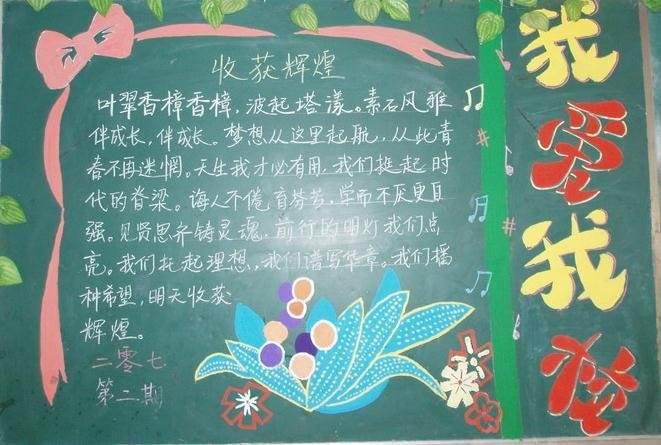 收获辉煌
叶翠香樟香樟，波起塔漾。素石风雅
伴成长，伴成长。梦想从这里起航，从此青
春不再迷惘。天生我才必有用，我们挺起时
代的脊梁。诲人不倦育芬芳，学而不厌更自
强。见贤思齐铸灵魂，前行的明灯我们点
亮。我们托起理想，我们谱写华章。我们播
种希望，明天收获
辉煌。
二零七
第二期
我
爱
我